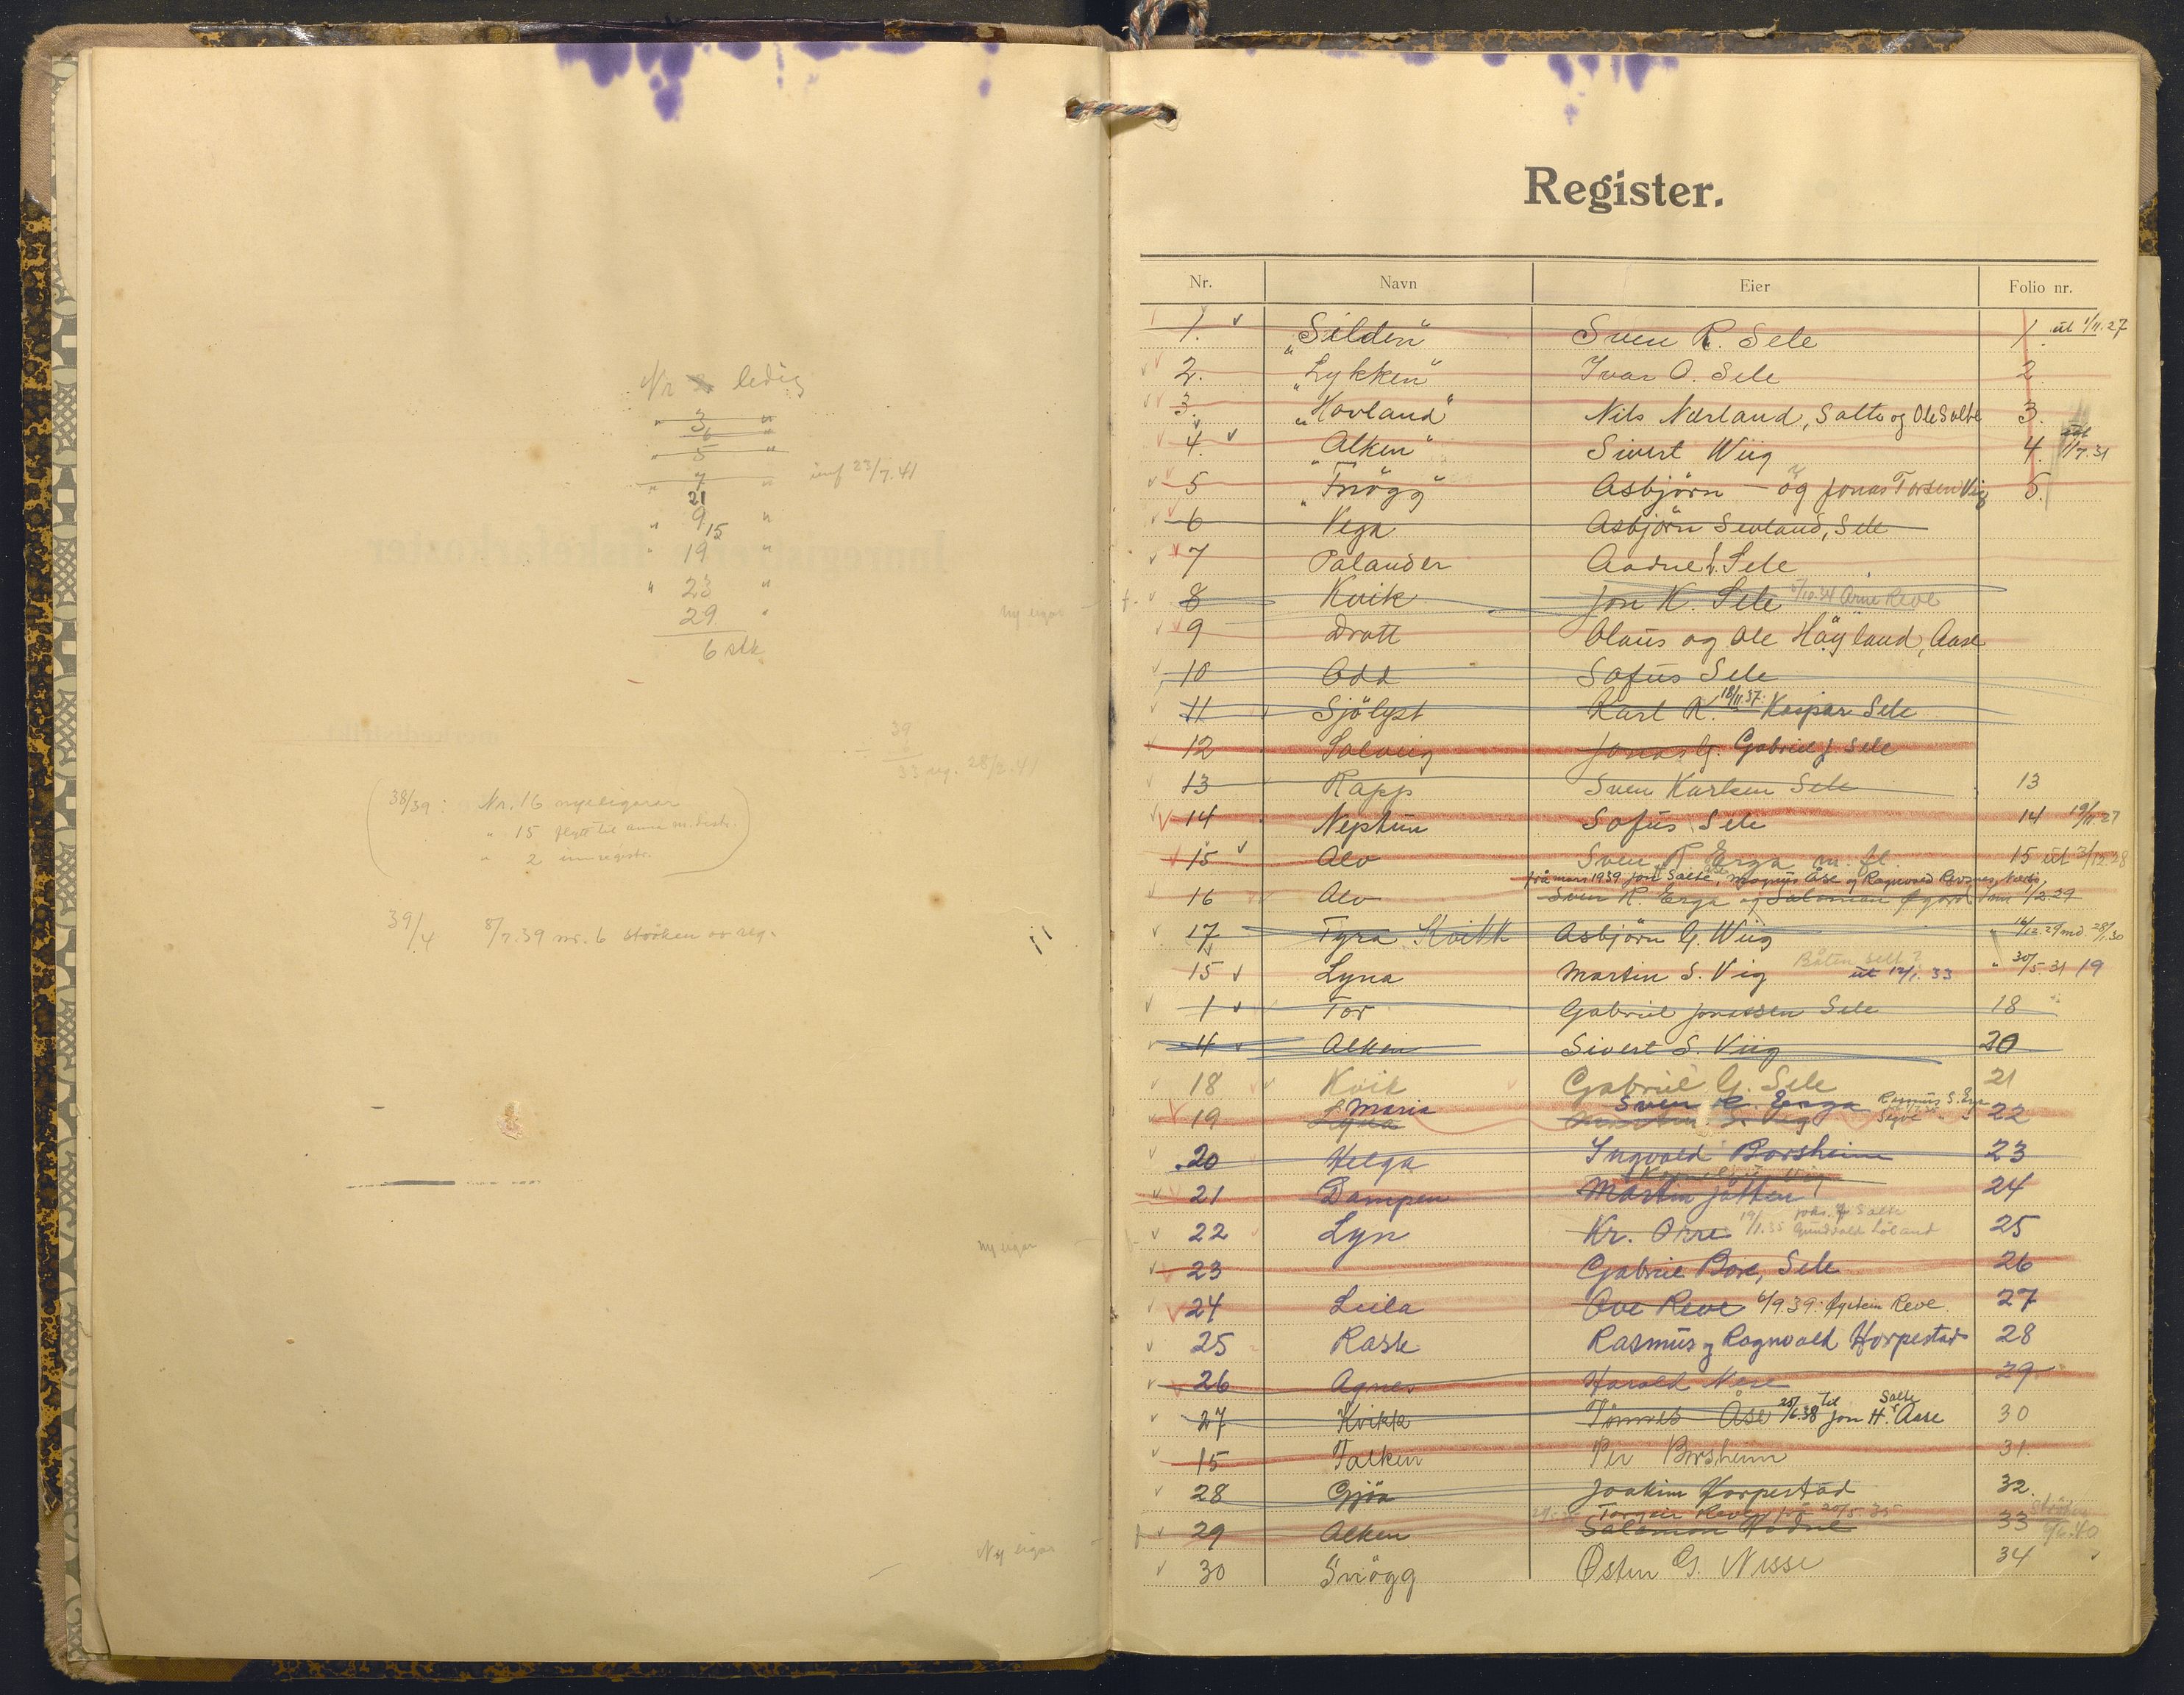 Nr ledig
" 3 "
6 "
" 5 "
" 7 " 23/7.41
21
" 9 "
15
" 19 "
" 23 "
29 "
6 stk
ny eigar
39
6
33 reg. 28/2.41
38/39: Nr. 16 nye eigarar
" 15 flytt til anna m.distr.
" 2 innregistr.
39/4 8/7.39 nr. 6 stroken or reg.
ny eigar
Ny eigar
Register.
Nr. Navn Eier Folio nr.
1. "Silden" Sven R. Sele 1. ut 1/11.27
2. "Lykken" Ivar O. Sele 2
3. "Havland" Nils Nærland, Salte og Ole Salte 3.
4. "Alken" Sivert Wiig 4. ut 1/7.31
5 "Snögg" Asbjörn og Jonas Torsen Vig 5.
6 Vega Asbjörn Sevland, Sele
7 Palander Aadne Sele
8 Kvik Jon K. Sele Arne Reve
9 Drott Olaus og Ole Höyland, Aase
10 Odd Sofus Sele
11 Sjölyst Karl K. 18/11.37. Kaspar Sele
12 Solveig Jonas G. Gabriel J. Sele
13 Rapp Sven Karlsen Sele 13
14 Neptun Sofus Sele 14 19/11.27
15 Alv Sven R Erga m. fl. 15 ut 3/12.28
frå mars 1939 Jon Salte, Magnus Åse og Ragnvald Revsnes, Nærbø
16 Alv Sven R. Erga og Salomon Øgård 1/2.29
17 Tyra Kvikk Asbjörn G. Wiig " 16/12.29 md 28/1.30
15 Lyna Martin S. Vig Båten selt? ut 12/1.33 " 30/5 31 19
1 Tor Gabriel Jonassen Sele 18
4 Alken Sivert S. Viig 20
18 Kvik Gabriel G. Sele 21
Maria Sven R. Erga Rasmus S. Erga
19 Lyna Martin S. Vig 22
20 Helga Ingvald Borsheim 23
21 Dampen Martin Jåtten 24
22 Lyn Kr. Orre 19/1.35 Gundvald Löland 25
23 Gabriel Bore, Sele 26
24 Leila Ove Reve 6/9.39: Øystein Reve. 27
25 Rask Rasmus og Ragnvald Horpestad 28
26 Agnes Harald Nese 29
27 Kvikk Tönnes Åse 25/6.38 til Jon H. Salte Åsse 30
15 Falken Per Borsheim 31.
28 Gjöa Joakim Horpestad 32.
Torgeir Reve frå 20/5.35
29 Alken Salamon Hodne 33
30 Snögg Østen G. Nesse 34